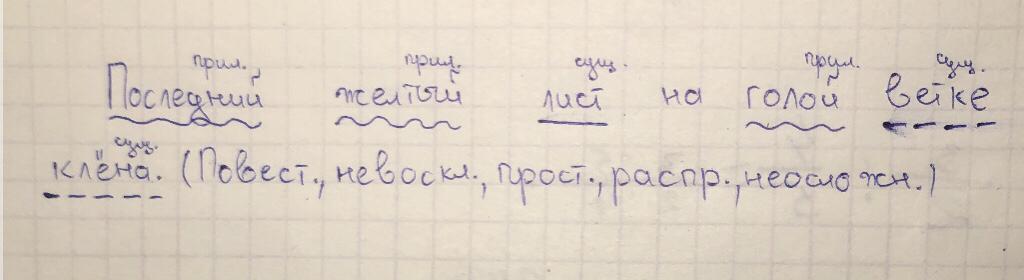 прил. прил. сущ. прил. сущ.
Последний желтый лист на голой ветке
сущ.
клёна. (Повест., невоскл., прост., распр., неосложн.)